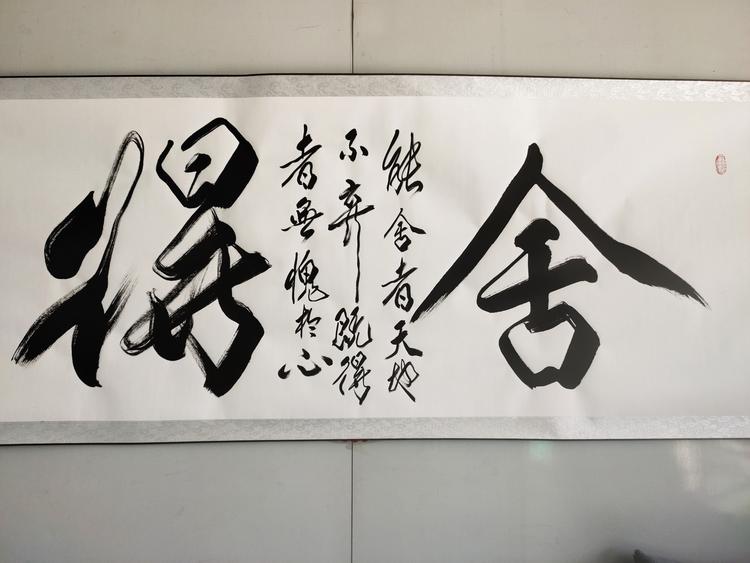 舍
能舍者天地
不弃既得
者无愧於心
得